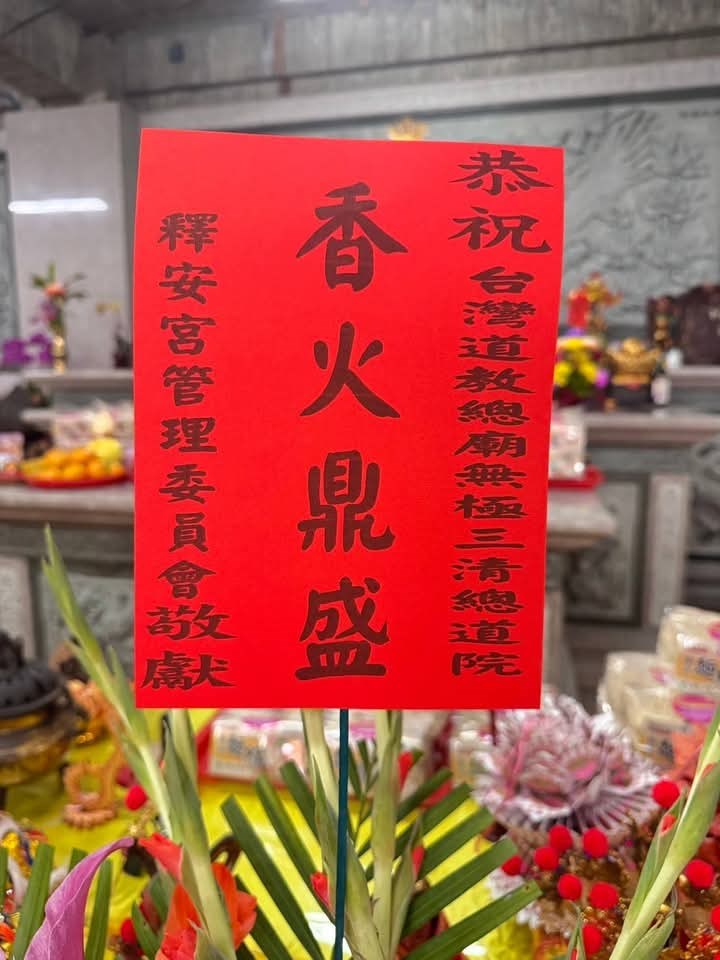 恭祝台灣道教總廟無極三清總道院
香火鼎盛
釋安宮管理委員會敬獻